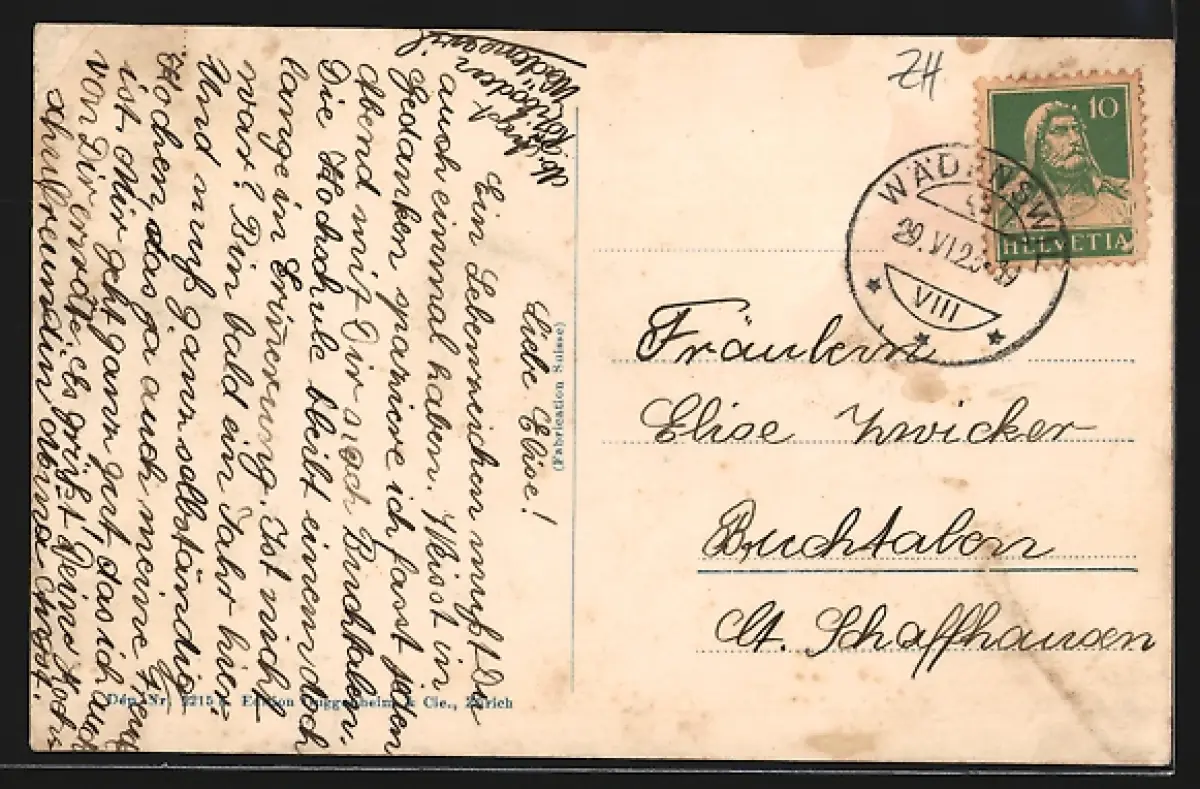 Liebe Elise!
Ein Lebenzeichen mußt Du
auch einmal haben. Weisst in
Gedanken spaziere ich fast jeden
Abend mit Dir nach Buchtalen.
Die Hochschule bleibt einem doch
lange in Erinerung. Ist nicht
war? Bin bald ein Jahr hier.
Und muß ganz selbständig
Kochen, das ja auch meine Freud
ist. Mir geht ganz gut das ich auch
von Dir erwarte. Es grüßt Deine Koch
schulfreundin Anna
(Fabrication Suisse)
Dép. Nr. 2215 Edition Guggenheim & Cie., Zürich
ZH
10
HELVETIA
WÄDENSWIL
29.VI.23
VIII
Fräulein
Elise Zwicker
Buchtalen
Ct. Schaffhausen